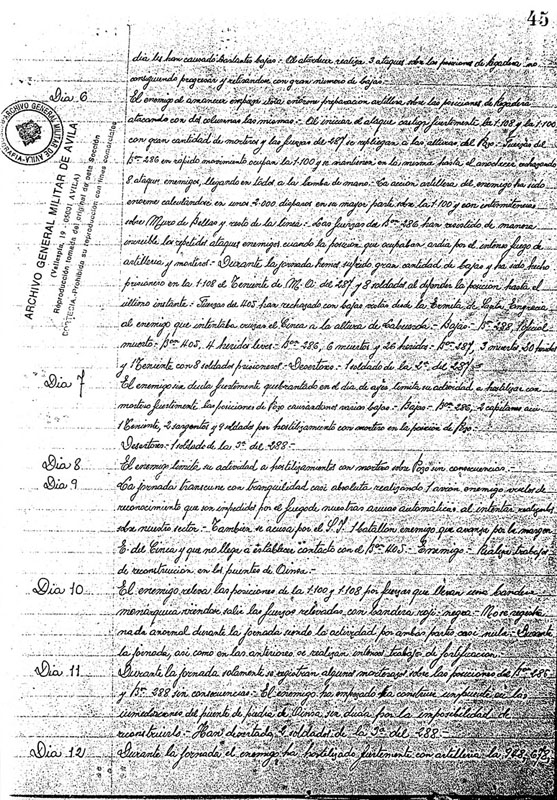 45
dia les han causado bastantes bajas.- Al atardecer realiza 3 ataques sobre las posiciones de no
consiguiendo progresar y retirandose con gran numero de bajas.-
Dia 6 El enemigo al amanecer empezó enorme preparacion artillera sobre las posiciones de
atacando con dos columnas las mismas.- Al iniciar el ataque castiga fuertemente la 1.108 y la 1.100
con gran cantidad de morteros y las fuerzas del 287 se repliegan a las alturas del Pozo.- Fuerzas del
Bon 286 en rapido movimiento ocupan la 1.100 y se mantienen en la misma hasta el anochecer rechazando
8 ataques enemigos, llegando en todos a la bomba de mano.- La acción artillera del enemigo ha sido
enorme calculandose en unos 2.000 disparos en su mayor parte sobre la 1.100 y con intermitencias
sobre Muro de Bellos y resto de la linea.- Las fuerzas del Bon 286 han resistido de manera
increible los repetidos ataques enemigos cuando la posición que ocupaban ardia por el intenso fuego de
artilleria y morteros.- Durante la jornada hemos sufrido gran cantidad de bajas y ha sido hecho
prisionero en la 1.108 el Teniente de M. A. del 287 y 8 soldados al defender la posicion hasta el
último instante.- Fuerzas del 405 han rechazado con bajas vistas desde la Ermita de Santa
al enemigo que intentaba cruzar el Cinca a la altura de Labuerda.- Bajas.- Bon 288, 1 oficial
muerto.- Bon 405, 4 heridos leves.- Bon 286, 6 muertos y 26 heridos.- Bon 287, 3 muertos, 20 heridos
y 1 teniente con 8 soldados prisioneros.- Desertores.- 1 soldado de la 2ª del 287.-
Dia 7 El enemigo sin duda fuertemente quebrantado en el dia de ayer, limita su actividad a hostilizar con
mortero fuertemente las posiciones de Pozo causandonos varias bajas.- Bajas.- Bon 286, 2 capitanes
1 Teniente, 2 sargentos y 9 soldados por hostilizamiento con mortero en la posición de Pozo.-
Desertores.- 1 soldado de la 3ª del 288.-
Dia 8 El enemigo limita su actividad a hostilizamientos con mortero sobre Pozo sin consecuencias.-
Dia 9 La jornada transcurre con tranquilidad casi absoluta realizando 1 avión enemigo vuelos de
reconocimiento que son impedidos por el fuego de nuestras armas automáticas al intentar realizarlos
sobre nuestro sector.- Tambien se acusa por el S.I. 1 batallon enemigo que avanza por la margen
E. del Cinca y que no llega a establecer contacto con el Bon 405.- Enemigo.- Realiza trabajos
de reconstrucion en los puentes de Ainsa.-
Dia 10 El enemigo releva las posiciones de la 1.100 y 1.108 por fuerzas que llevan una bandera
monarquica viendose salir las fuerzas relevadas con bandera roji-negra.- No se registra
nada anormal durante la jornada siendo la actividad por ambas partes casi nula.- Durante
la jornada, asi como en las anteriores se realizan intensos trabajos de fortificación.-
Dia 11 Durante la jornada solamente se registran algunos morterazos sobre las posiciones del Bon 286
y Bon 288 sin consecuencias.- El enemigo ha empezado ha construir un puente en las
inmediaciones del puente de piedra de Ainsa sin duda por la imposibilidad de
reconstruirlo.- Han desertado 2 soldados de la 3ª del 288.-
Dia 12 Durante la jornada el enemigo ha hostilizado fuertemente con artilleria la 908,
ARCHIVO GENERAL MILITAR DE AVILA
ARCHIVO GENERAL MILITAR DE AVILA
(Vallespin, 19 - 05001 AVILA)
Reproducción tomada del original de esta Sección
CORTESIA-Prohibida su reproducción con fines comerciales